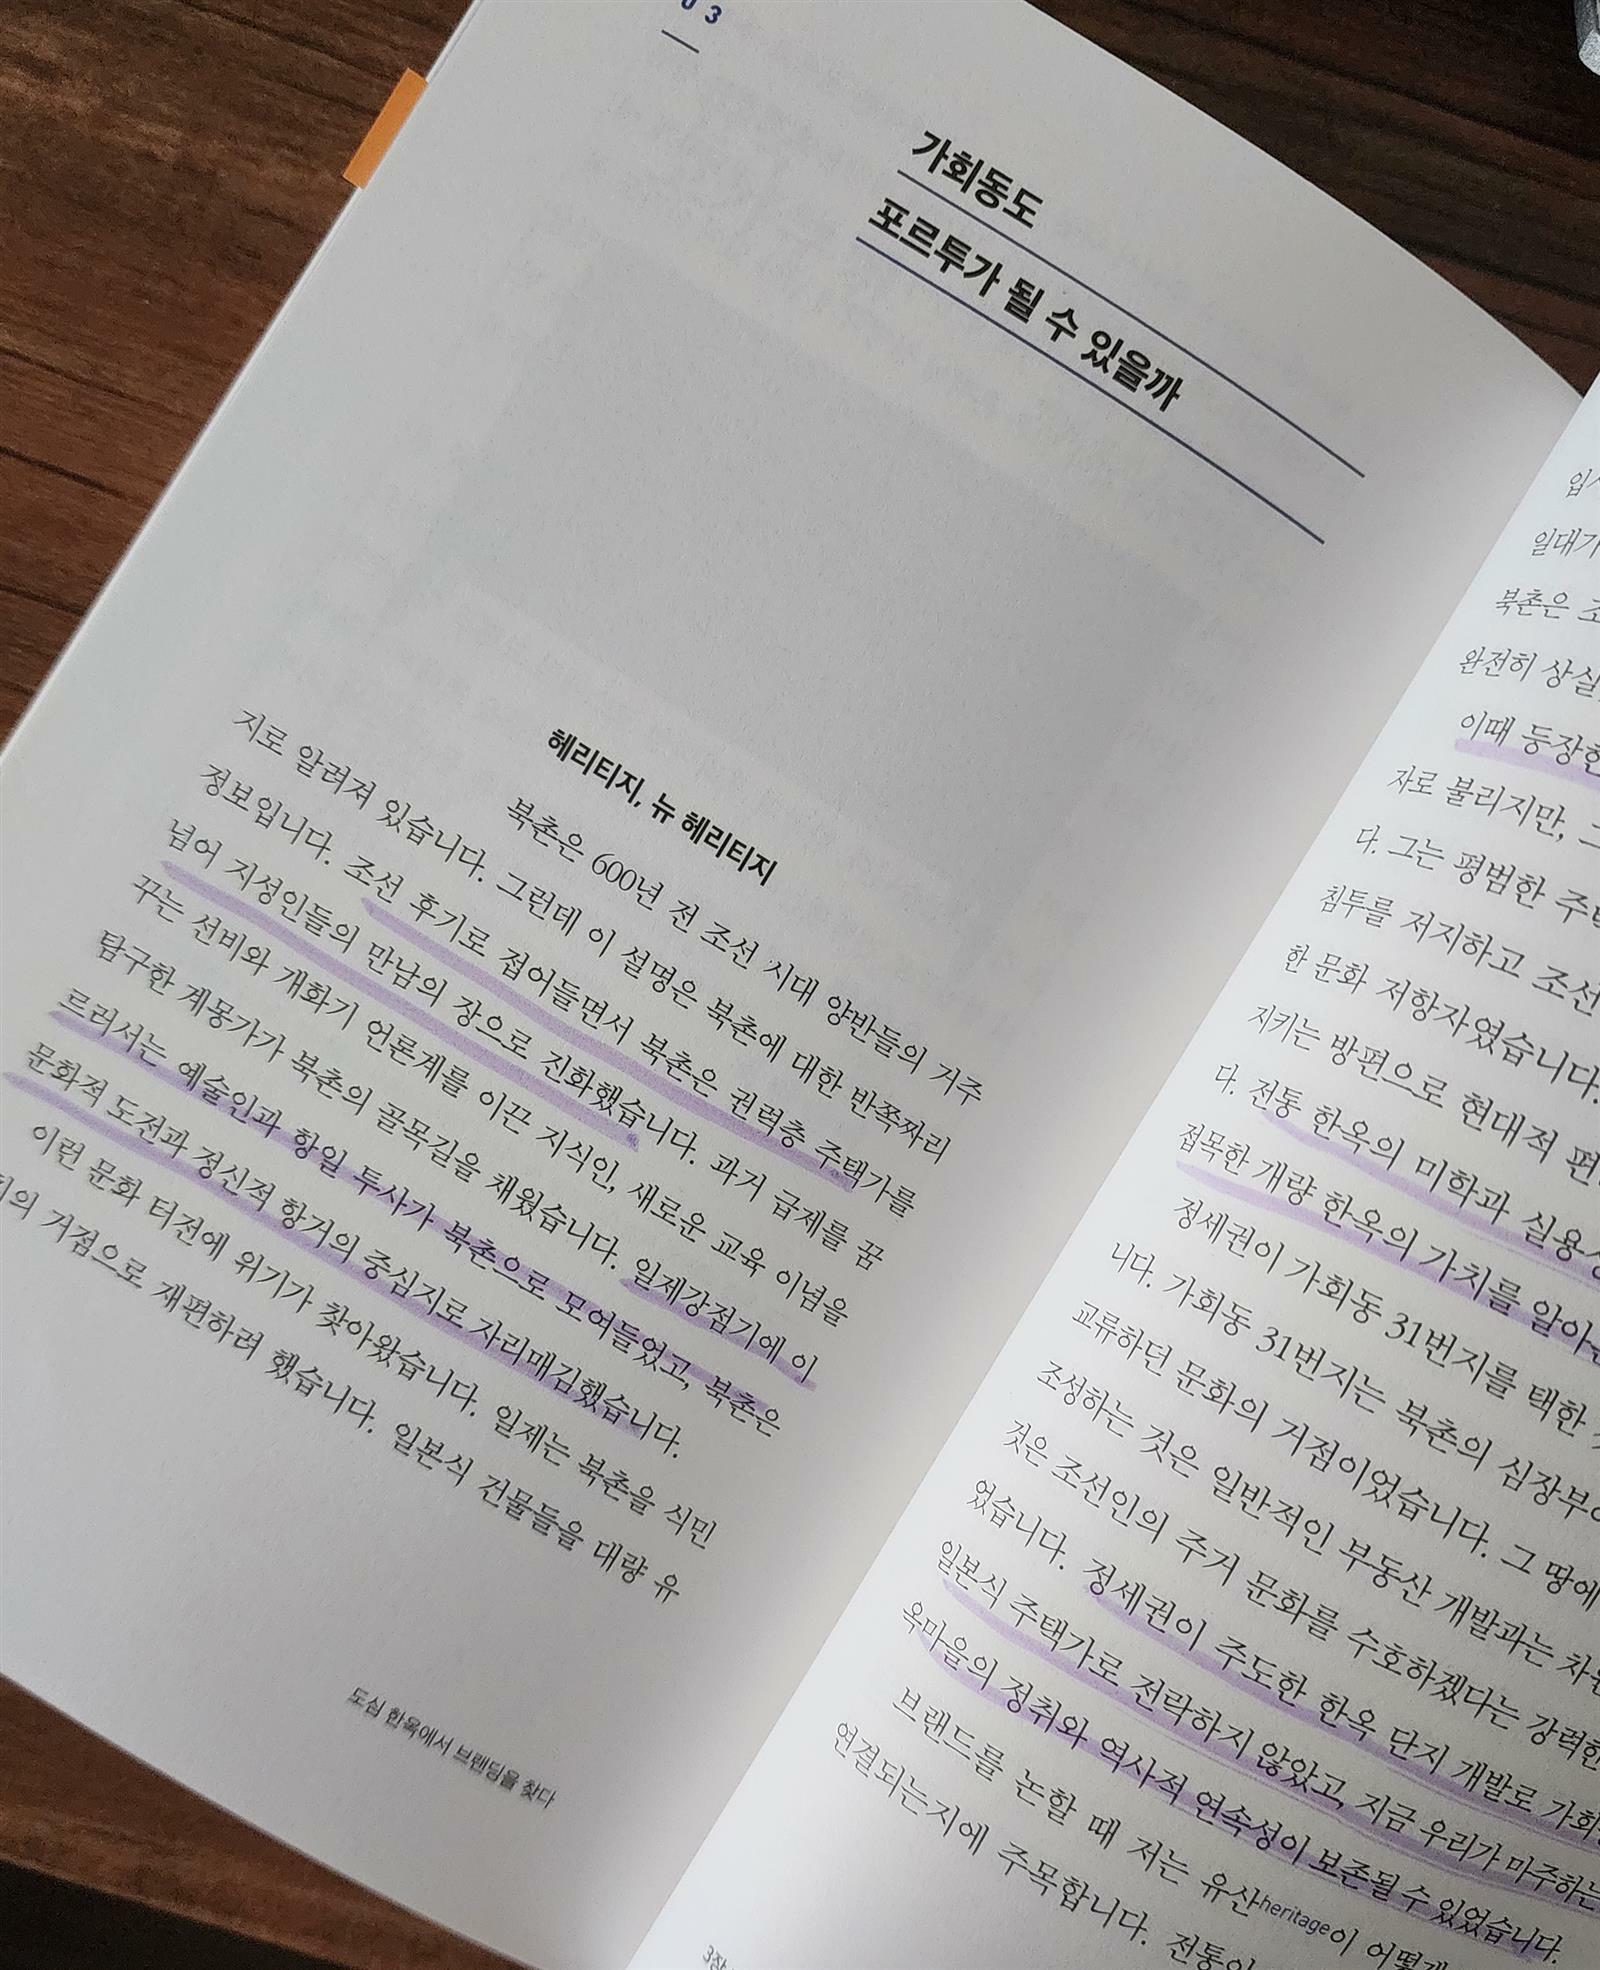 03
가회동도
포르투가 될 수 있을까
헤리티지, 뉴 헤리티지
북촌은 600년 전 조선 시대 양반들의 거주
지로 알려져 있습니다. 그런데 이 설명은 북촌에 대한 반쪽짜리
정보입니다. 조선 후기로 접어들면서 북촌은 권력층 주택가를
넘어 지성인들의 만남의 장으로 진화했습니다. 과거 급제를 꿈
꾸는 선비와 개화기 언론계를 이끈 지식인, 새로운 교육 이념을
탐구한 계몽가가 북촌의 골목길을 채웠습니다. 일제강점기에 이
르러서는 예술인과 항일 투사가 북촌으로 모여들었고, 북촌은
문화적 도전과 정신적 항거의 중심지로 자리매김했습니다.
이런 문화 터전에 위기가 찾아왔습니다. 일제는 북촌을 식민
의 거점으로 재편하려 했습니다. 일본식 건물들을 대량 유
도심 한옥에서 브랜딩을 찾다
일대가
북촌은
완전히 상실
이때 등장한
자로 불리지만,
다. 그는 평범한
침투를 저지하고 조선
한 문화 저항자였습니다.
지키는 방편으로 현대적
다. 전통 한옥의 미학과
접목한 개량 한옥의 가치를
정세권이 가회동 31번지를 택한
니다. 가회동 31번지는 북촌의 심장부
교류하던 문화의 거점이었습니다. 그 땅에
조성하는 것은 일반적인 부동산 개발과는
것은 조선인의 주거 문화를 수호하겠다는 강력한
었습니다. 정세권이 주도한 한옥 단지 개발로
일본식 주택가로 전락하지 않았고, 지금 우리가 마주하는
옥마을의 정취와 역사적 연속성이 보존될 수 있었습니다.
브랜드를 논할 때 저는 유산heritage이 어떻게
연결되는지에 주목합니다.
3장